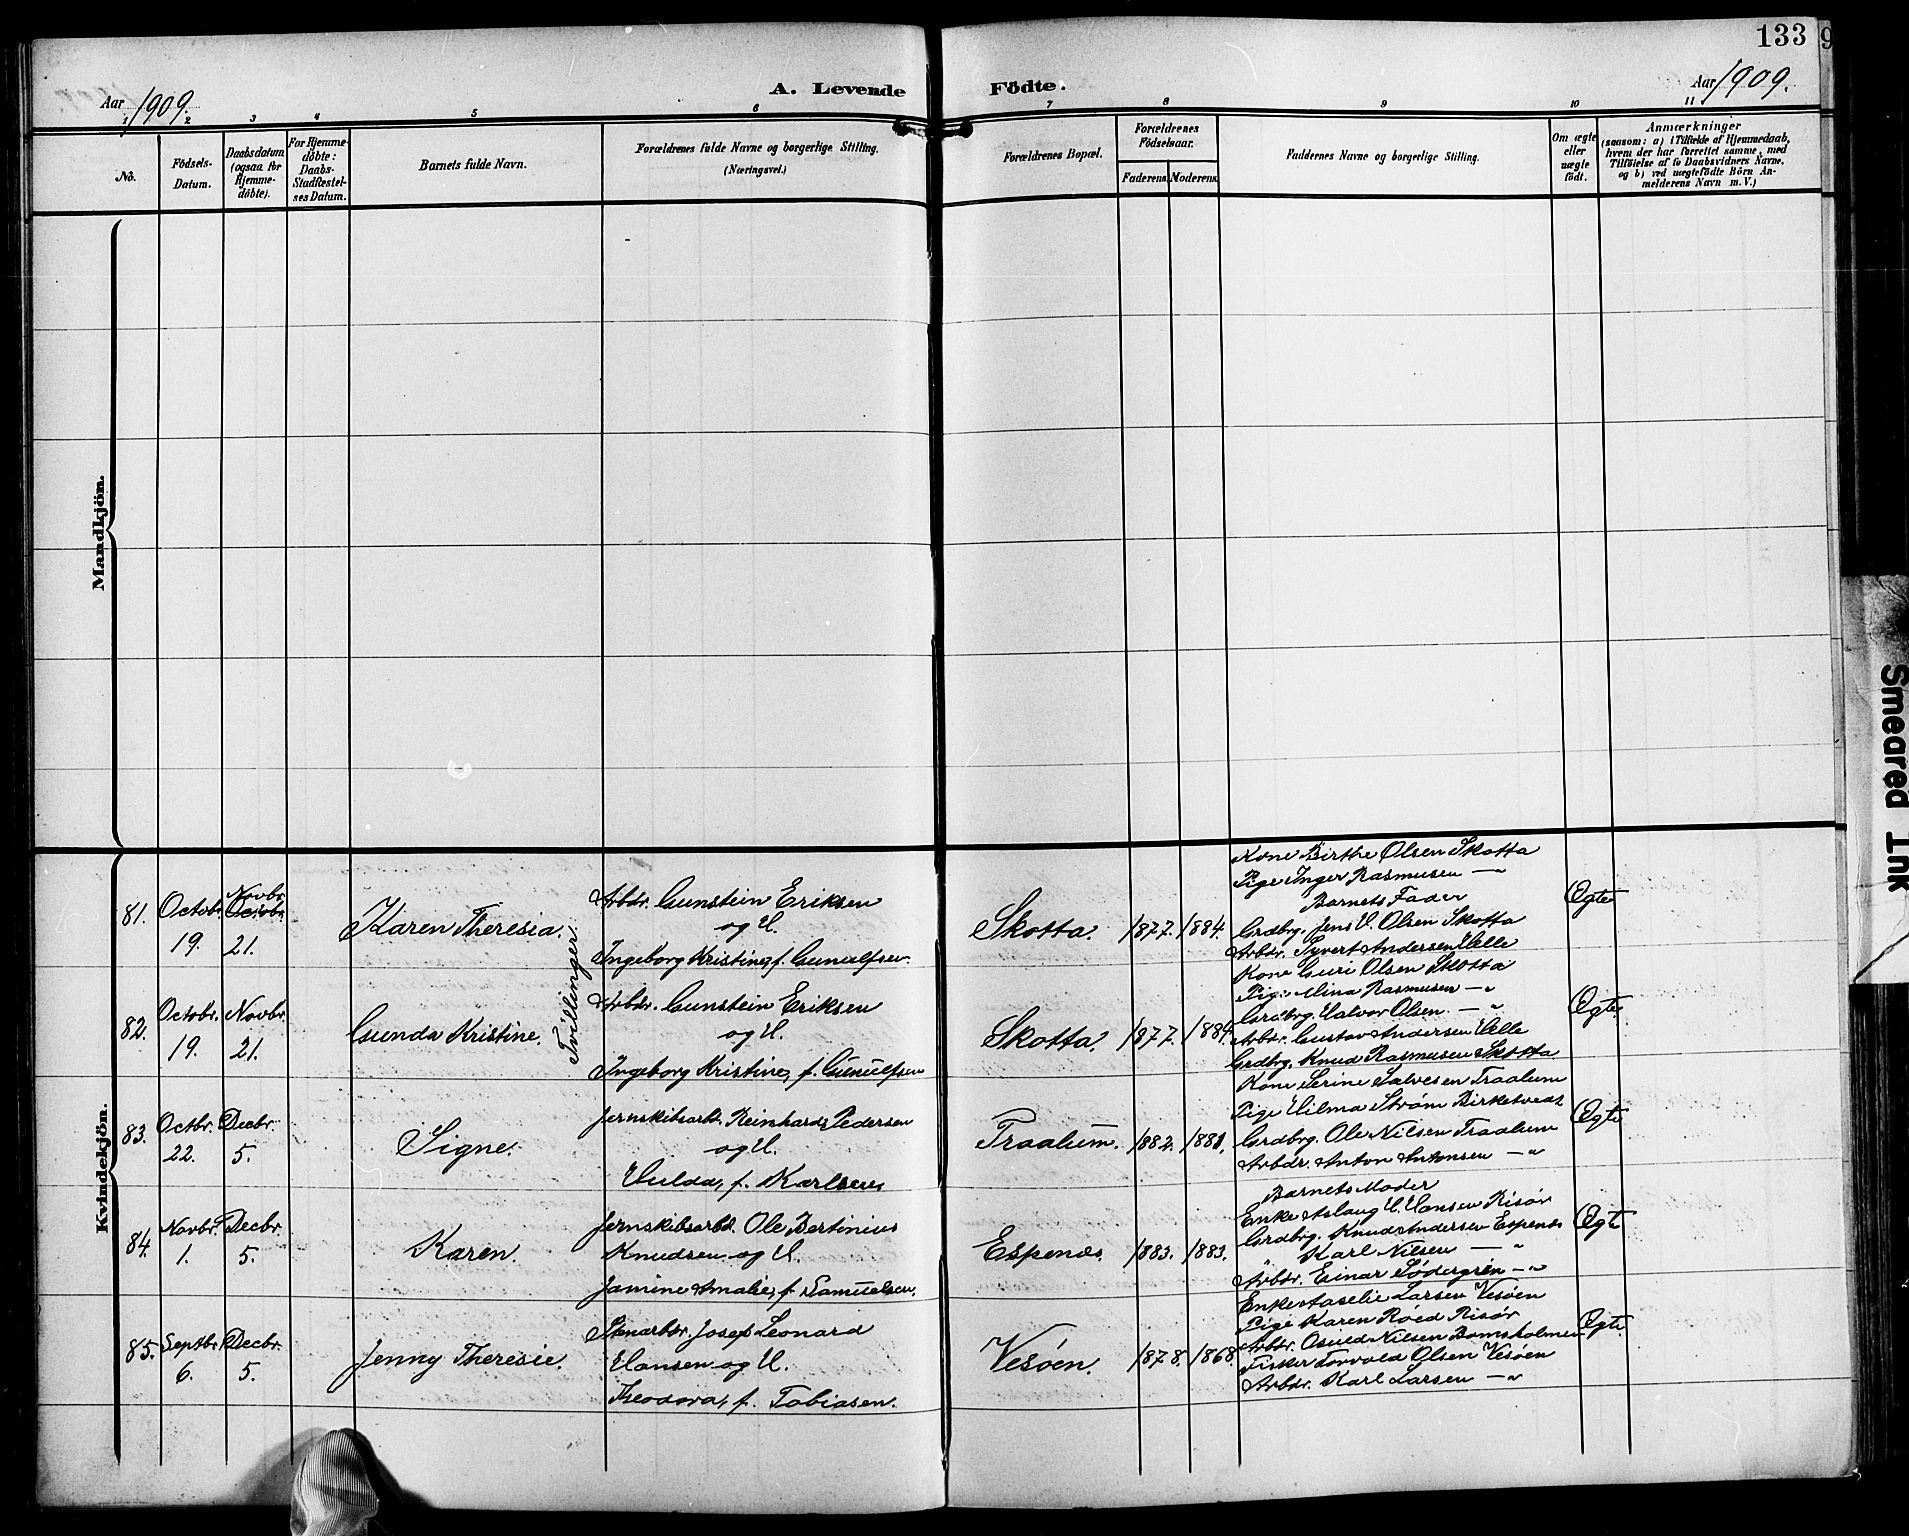 133 9
Aar 1909. A. Levende Födte. Aar 1909.
1 2 3 4 5 6 7 8 9 10 11
No.
Födsels-
Datum.
Daabsdatum
(ogsaa for
Hjemme-
döbte).
For Hjemme-
döbte:
Daabs-
Stadfæstel-
ses Datum.
Barnets fulde Navn.
Forældrenes fulde Navne og borgerlige Stilling.
(Næringsvei.)
Forældrenes Bopæl.
Forældrenes
Födselsaar.
Faderens. Moderens.
Faddernes Navne og borgerlige Stilling.
Om ægte
eller
uægte
födt.
Anmærkninger
(saasom: a) i Tilfælde af Hjemmedaab,
hvem der har forrettet samme, med
Tilföielse af to Daabsvidners Navne,
og b) ved uægtefödte Börn An-
melderens Navn m. V.)
Mandkjön.
Kvindekjön.
81.
Octobr.
19.
Novbr.
Octobr.
21.
Karen Theresia.
Tvillinger.
Arbdr. Gunstein Eriksen
og H.
Ingeborg Kristine, f. Gunulfsen.
Skotta.
1877. 1884.
Kone Birthe Olsen Skotta
Pige Inger Rasmusen —"
Barnets Fader
Grdbrg. Jens H. Olsen Skotta
Arbdr. Syvert Andersen Helle
Ægte
82.
Octobr.
19.
Novbr.
21.
Gunda Kristine.
Arbdr. Gunstein Eriksen
og H.
Ingeborg Kristine, f. Gunulfsen
Skotta.
1877. 1884.
Kone Guri Olsen Skotta
Pige Mina Rasmusen —"
Grdbrg. Halvor Olsen —"
Arbdr. Gustav Andersen Helle
Grdbrg. Knud Rasmusen Skotta
Ægte
83.
Octbr.
22.
Decbr.
5.
Signe.
Jernskibsarb. Reinhard Pedersen
og H.
Hulda, f. Karlsen
Traalum.
1882. 1881.
Kone Serine Salvesen Traalum
Pige Hilma Strøm Birketvedt
Grdbrg. Ole Nilsen Traalum
Arbdr. Anton Antonsen —"
Ægte
84.
Novbr.
1.
Decbr.
5.
Karen.
Jernskibsarbd. Ole Bertinius
Knudsen og H.
Jamine Amalie, f. Samuelsen.
Espenes.
1883. 1883.
Barnets Moder
Enke Aslaug H. Hansen Risør
Grdbrg. Knud Andersen Espenes
Karl Nilsen —"
Arbdr. Einar Södergren —"
Ægte
85.
Septbr.
6.
Decbr.
5.
Jenny Theresie.
Stenarbdr. Josef Leonard
Hansen og H.
Theodora, f. Tobiasen.
Vesøen.
1878. 1868.
Enke Aaselie Larsen Vesøen
Pige Karen Røed Risør
Arbdr. Osuld Nilsen Bomsholmen
Fisker Torvald Olsen Vesøen
Arbdr. Karl Larsen —"
Ægte.
Smeared Ink